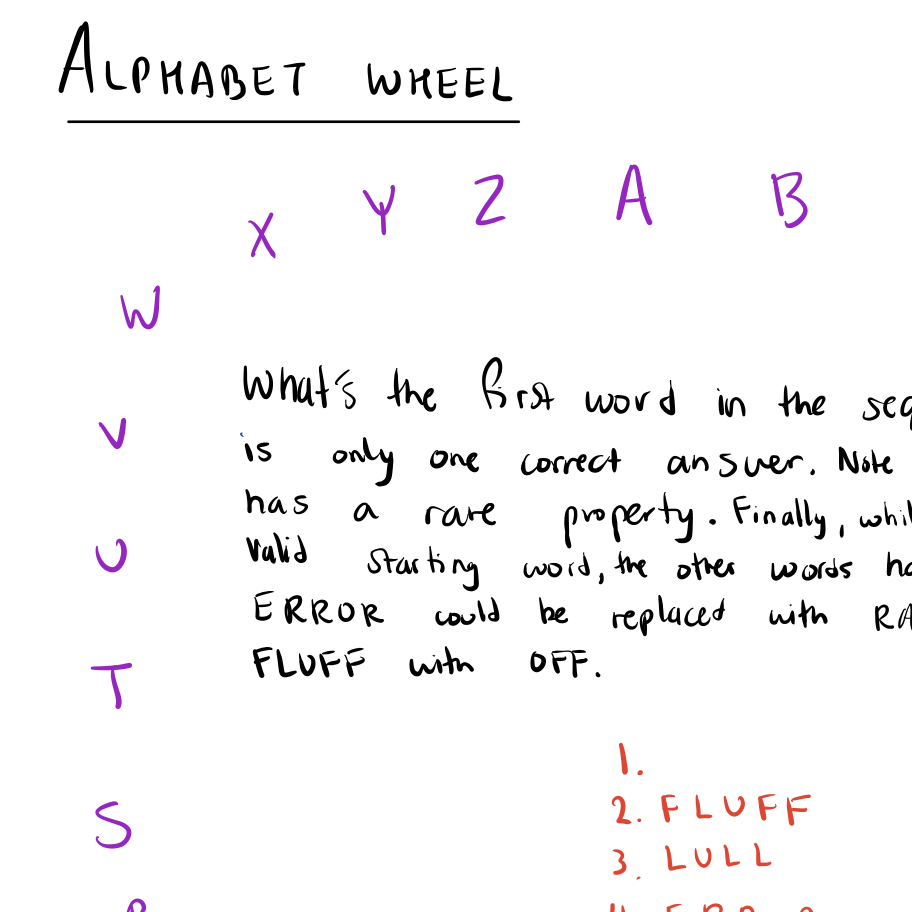 ALPHABET WHEEL
X Y Z A B
W
What's the first word in the seq
V
is only one correct answer. Note
has a rare property. Finally, whil
U
valid starting word, the other words ha
ERROR could be replaced with RA
FLUFF with OFF.
T
1.
S
2. FLUFF
3. LULL